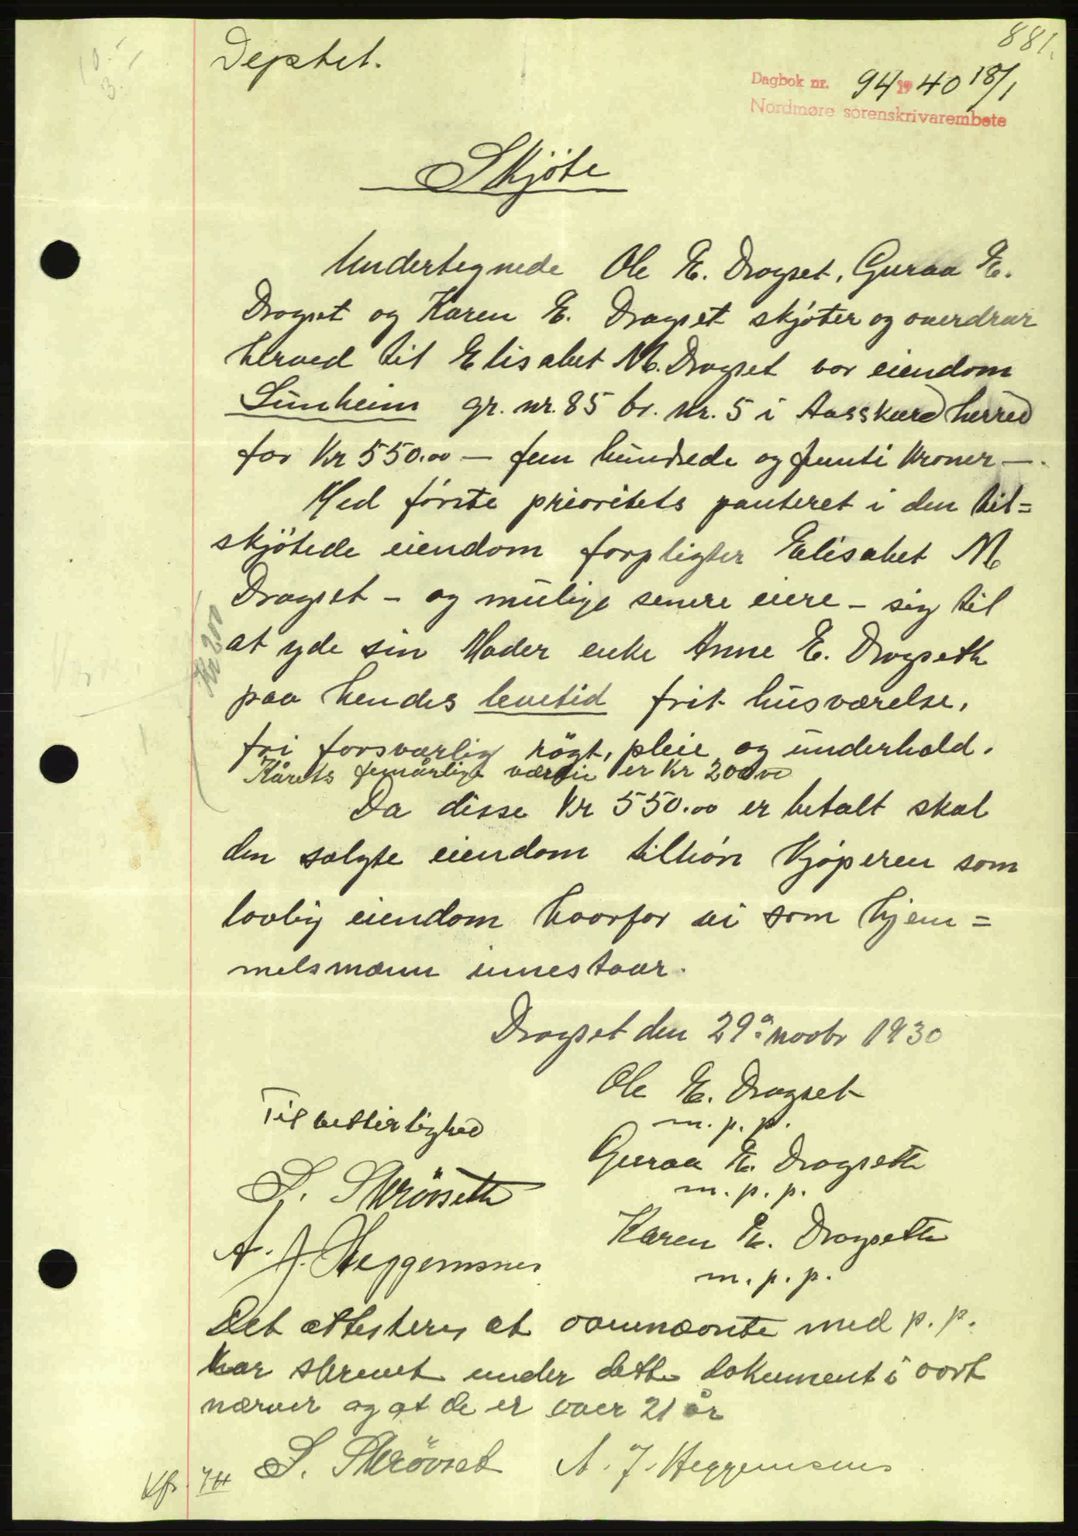 881.
Depstet.
Dagbok nr. 94 19 40 18/1
Nordmøre sorenskrivarembete
Skjøte
Undertegnede Ole E. Dragset, Guraa E.
Dragset og Karen E. Dragset skjøter og overdrar
herved til Elisabet M. Dragset vor eiendom
Sunheim gr. nr. 85 br. nr. 5 i Aasskard herred
for Kr 550.00 — fem hundrede og femti Kroner —.
Med første prioritets panteret i den til=
skjøtede eiendom forpligter Elisabet M
Dragset – og mulige senere eiere – sig til
at yde sin Moder enke Anne E. Dragseth
paa hendes levetid frit husværelse,
fri forsvarlig røgt, pleie og underhold.
Kårets femårlige værdi er Kr 200.00
Kr 200
Da disse Kr 550.00 er betalt skal
den solgte eiendom tilhøre Kjøperen som
lovlig eiendom hvorfor vi som hjem=
melsmænn innestaar.
Dragset den 29de novbr 1930
Ole E. Dragset
m. p. p.
Til vitterlighed
Guraa E. Dragseth
m. p. p.
S. Skrövseth
Karen E. Dragseth
m. p. p.
A. J. Heggemsnes
Det attesteres at ovennævnte med p. p.
har skrevet under dette dokument i vort
nærver og at de er over 21 år
S. Skrövset A. J. Heggemsnes